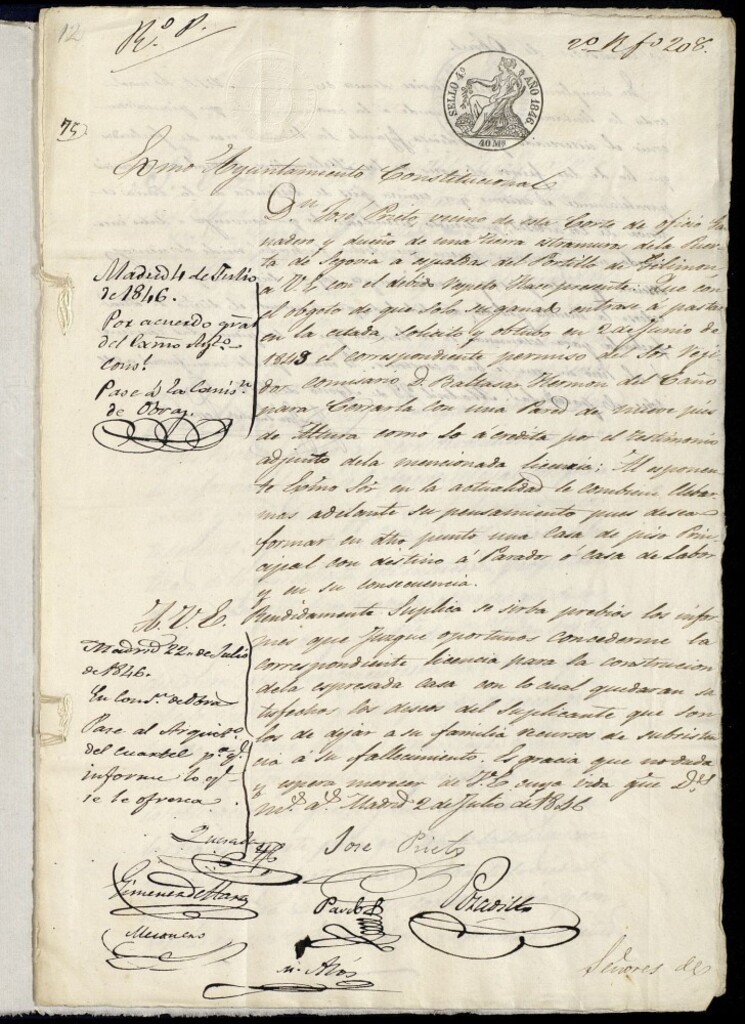 12
R.º P.
2º R fº 208.
SELLO 4º AÑO 1846.
40 Mº
75
Exmo Ayuntamiento Constitucional
Dn José Prieto vecino de esta Corte de oficio Ga
nadero y dueño de una tierra estramuros dela Puer
ta de Segovia á espaldas del Portillo de Gilimon,
a V.E. con el debido respeto Hace presente: Que con
el obgeto de que solo su ganado entrase á pastar
en la citada, solicito y obtubo en 2 de Junio de
1843 el correspondiente permiso del Sor. Reji
dor comisario D. Baltasar Hermon del Caño
para Cercarla con una Pared de nueve pies
de Altura como lo ácredita por el testimonio
adjunto dela mencionada licencia; Al esponen
te Exmo Sor en la actualidad le combiene llebar
mas adelante su pensamiento pues desea
formar en dho punto una Casa de piso Prin
cipal con destino á Parador ó casa de Labor
y en su consecuencia.
A. V. E. Rendidamente Suplica se sirba prebios los infor
mes que Juzgue oportunos concederme la
correspondiente licencia para la construccion
dela espresada casa con lo cual quedaran sa
tisfechos los deseos del Suplicante que son
los de dejar a su familia recursos de subsisten
cia á su fallecimiento. Es gracia que no duda
y espera merecer de V.E. cuya vida gue Ds
ms. as. Madrid 2 de Julio de 1846
Jose Prieto
Madrid 4 de Julio
de 1846.
Por acuerdo gral
del Exmo Ayto.
Consl.
Pase á la Comisn.
de Obras.
Madrid 22 de Julio
de 1846.
En Comsn. de Obras
Pase al Arquitto.
del cuartel pa. qe.
informe lo qe.
se le ofrezca.
Quesada
Gimenez de Haro
Pardo
Pradillo
Mesonero
Señores de